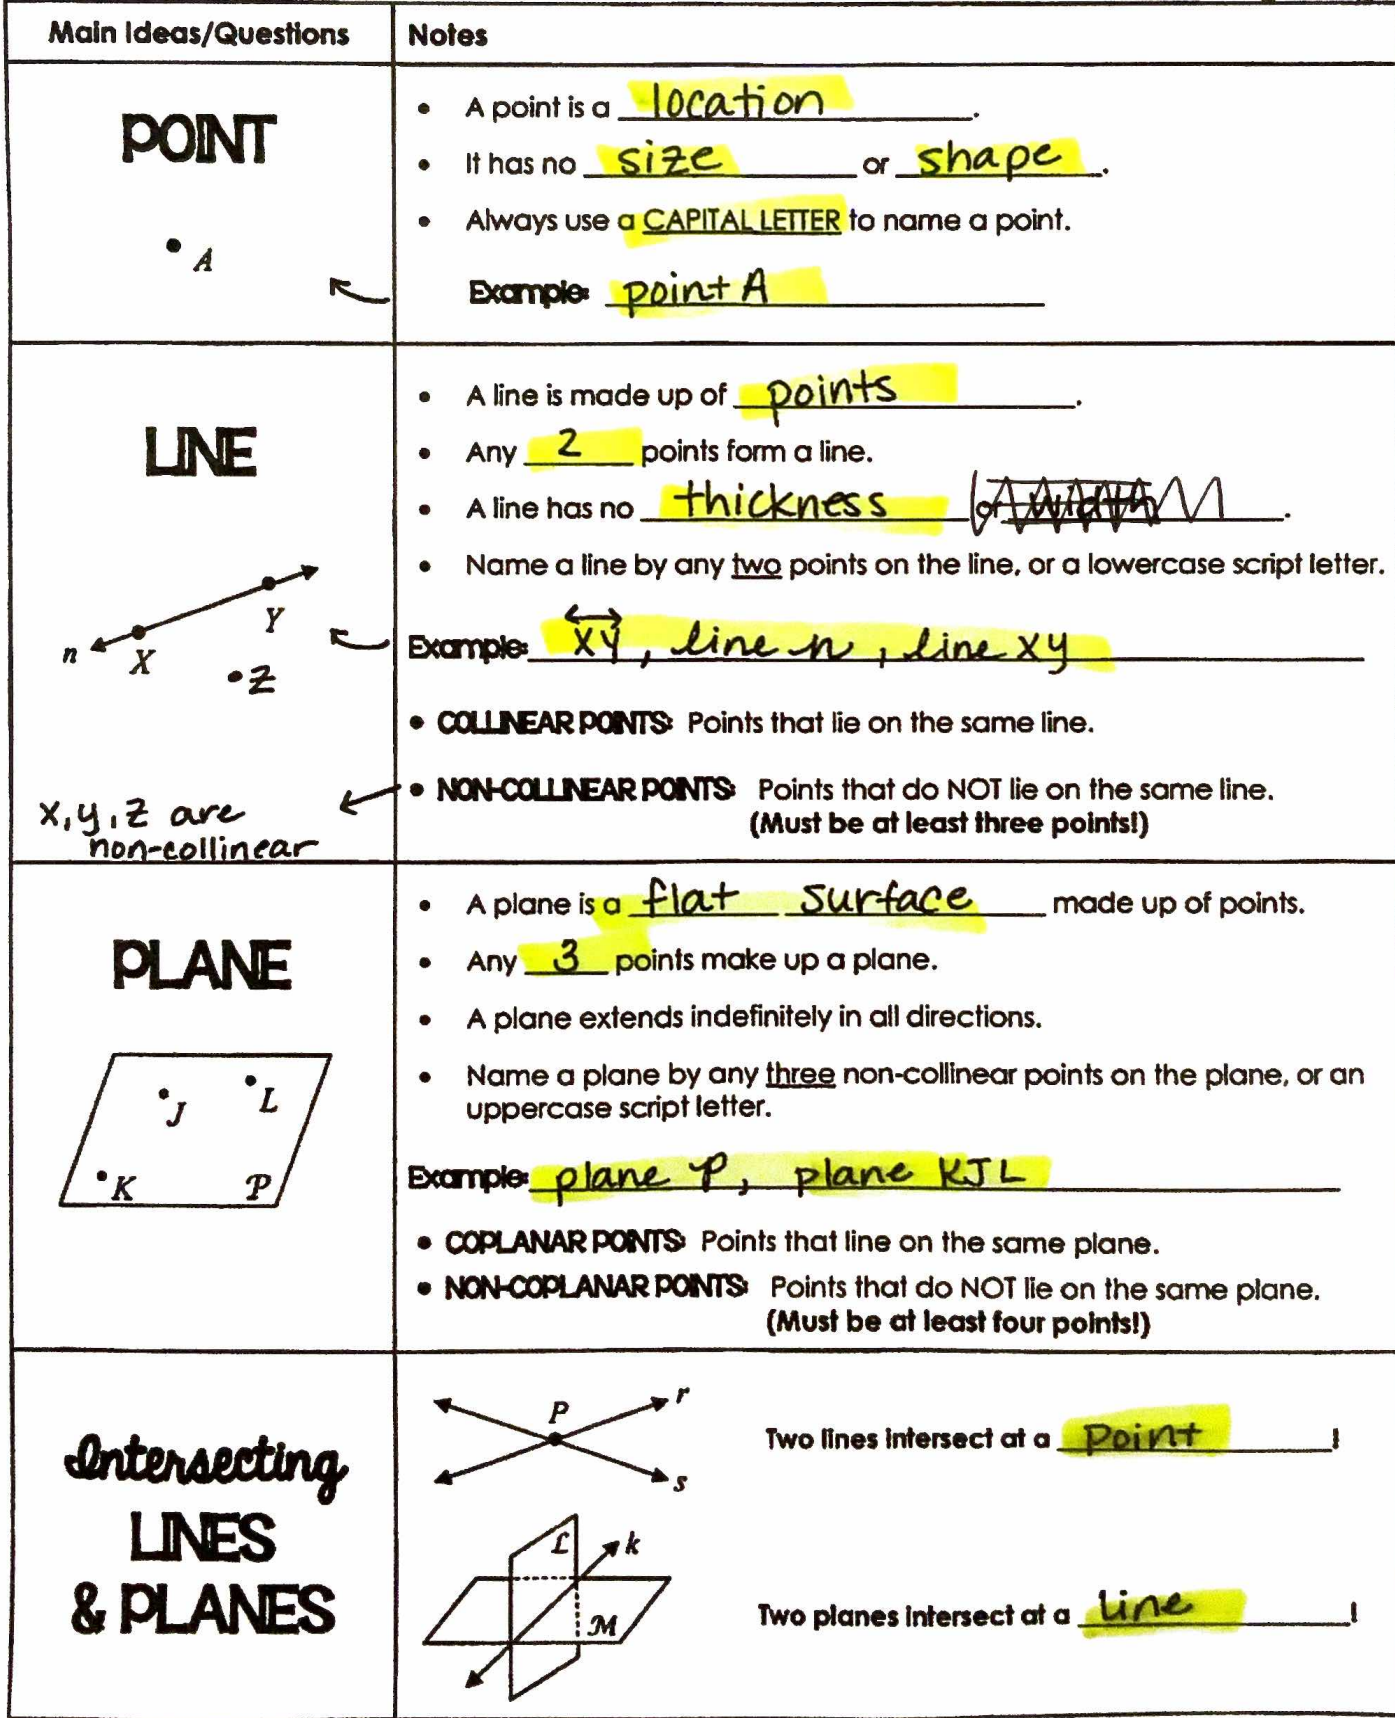 Main Ideas/Questions
Notes
POINT
A
• A point is a location.
• It has no size or shape.
• Always use a CAPITAL LETTER to name a point.
Example: point A
LINE
n X Y
Z
x, y, z are
non-collinear
• A line is made up of points.
• Any 2 points form a line.
• A line has no thickness or width.
• Name a line by any two points on the line, or a lowercase script letter.
Example: XY, line n, line XY
• COLLINEAR POINTS: Points that lie on the same line.
• NON-COLLINEAR POINTS: Points that do NOT lie on the same line.
(Must be at least three points!)
PLANE
J L
K P
• A plane is a flat surface made up of points.
• Any 3 points make up a plane.
• A plane extends indefinitely in all directions.
• Name a plane by any three non-collinear points on the plane, or an
uppercase script letter.
Example: plane P, plane KJL
• COPLANAR POINTS: Points that line on the same plane.
• NON-COPLANAR POINTS: Points that do NOT lie on the same plane.
(Must be at least four points!)
Intersecting
LINES
& PLANES
P r
s
Two lines intersect at a point!
L k
M
Two planes intersect at a line!